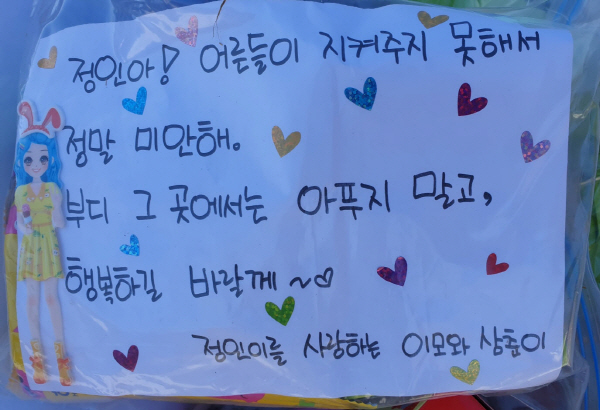 정인아! 어른들이 지켜주지 못해서
정말 미안해.
부디 그 곳에서는 아푸지 말고,
행복하길 바랄께~♡
정인이를 사랑하는 이모와 삼춘이